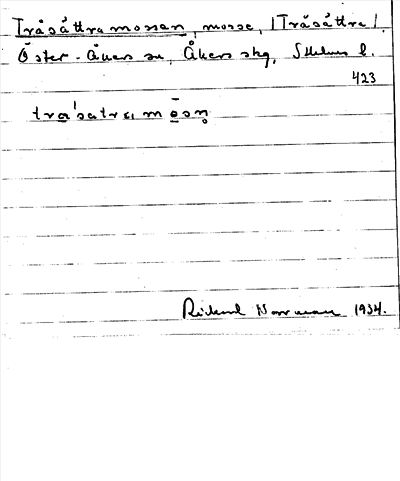 Tråsättra mossen, mosse, (Tråsättra).
Öster-Åkers sn, Åkers skg, Sthlms l.
423
Rickard Norrman 1934.